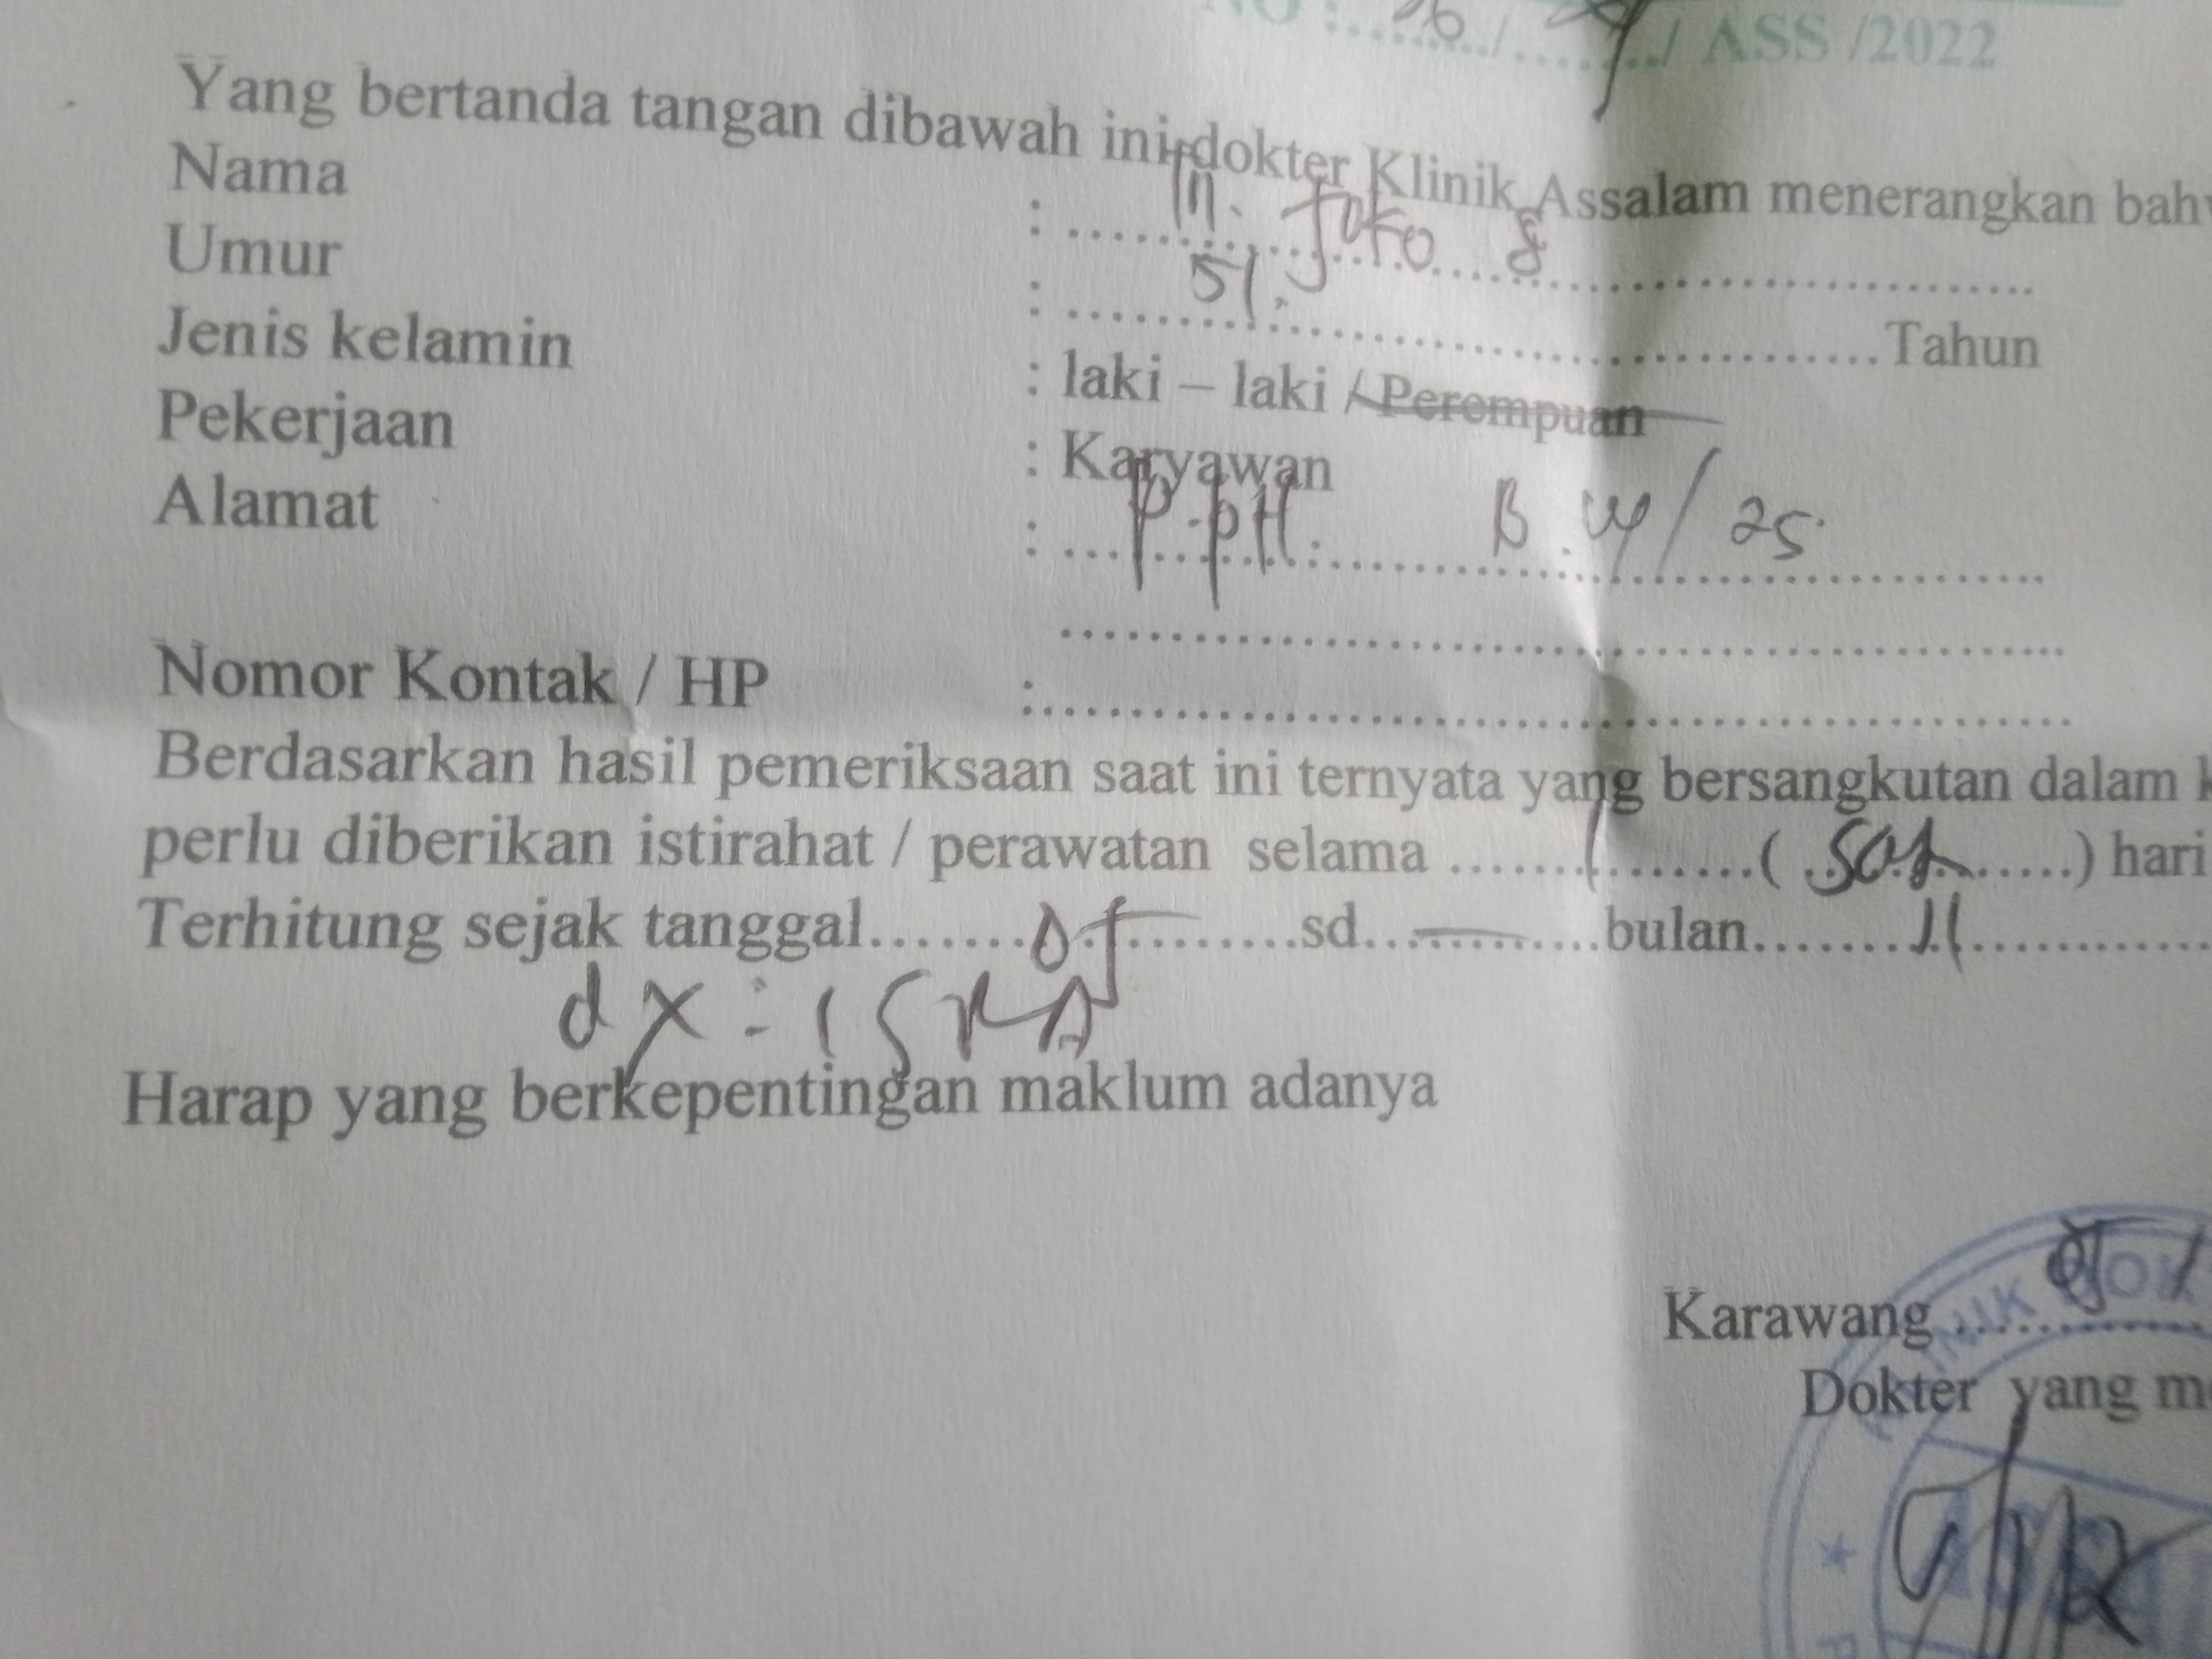 NO :......../......../ ASS /2022
Yang bertanda tangan dibawah ini dokter Klinik Assalam menerangkan
Nama : Tn. Joko S
Umur : 51. Tahun
Jenis kelamin : laki – laki / Perempuan
Pekerjaan : Karyawan
Alamat : P.PH. B. / 25
Nomor Kontak / HP :
Berdasarkan hasil pemeriksaan saat ini ternyata yang bersangkutan dalam
perlu diberikan istirahat / perawatan selama ....... 1 .......( ...........) hari
Terhitung sejak tanggal....... 07 .........sd...........bulan....... 11 ...........
dx : ISPA
Harap yang berkepentingan maklum adanya
Karawang
Dokter yang